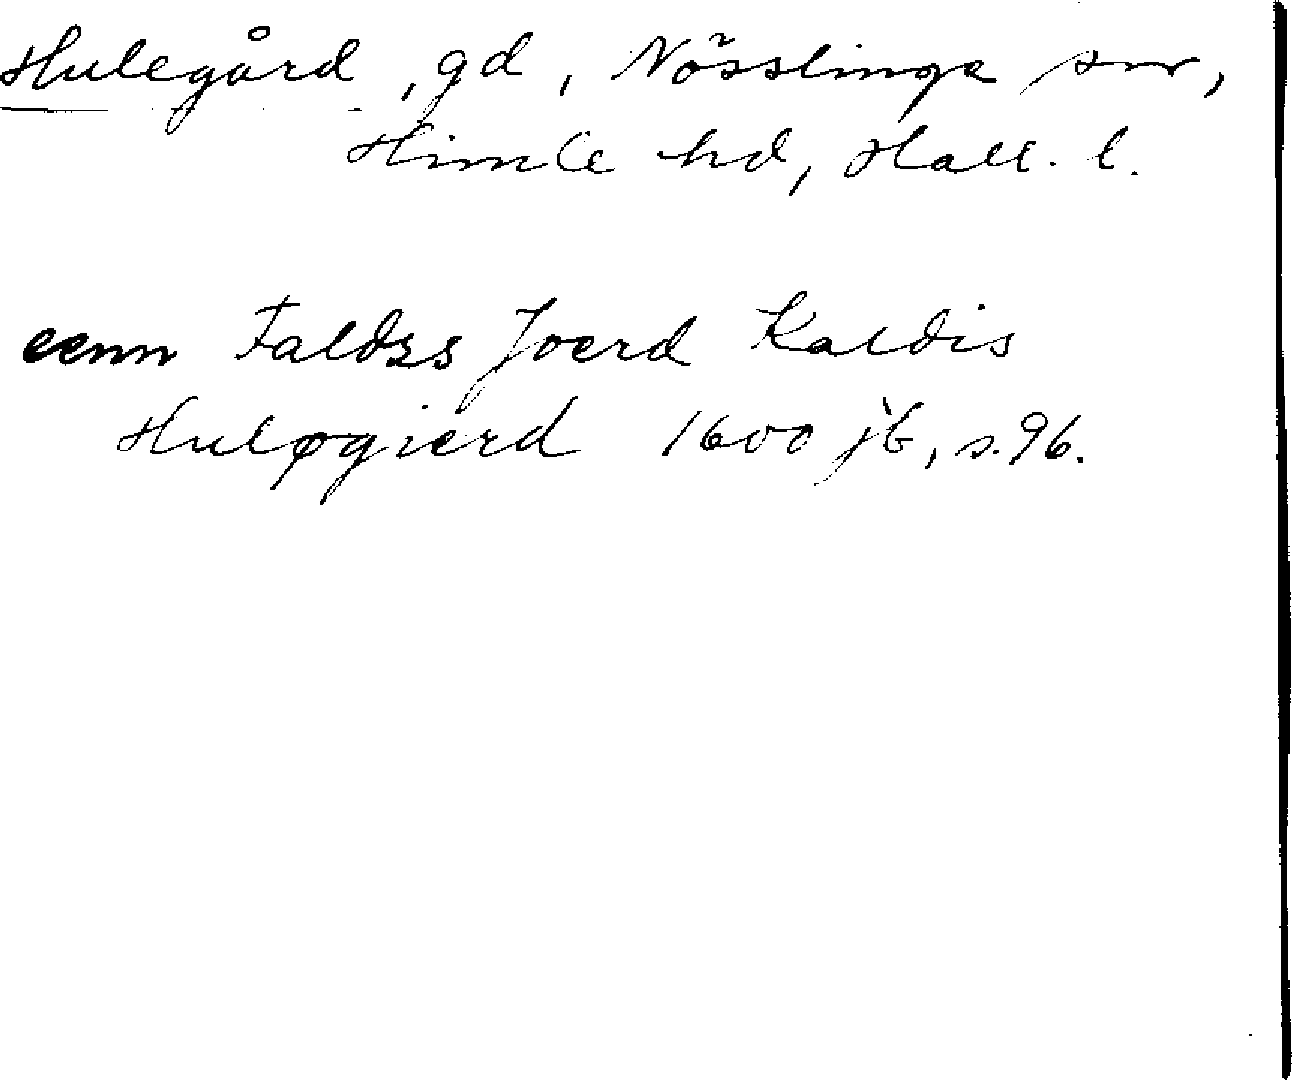 Hulegård, gd, Nösslinge sn,
Himle hd, Hall. l.
eenn Faldzs Joerd Kaldis
Huløgierd 1600 jb, s. 96.